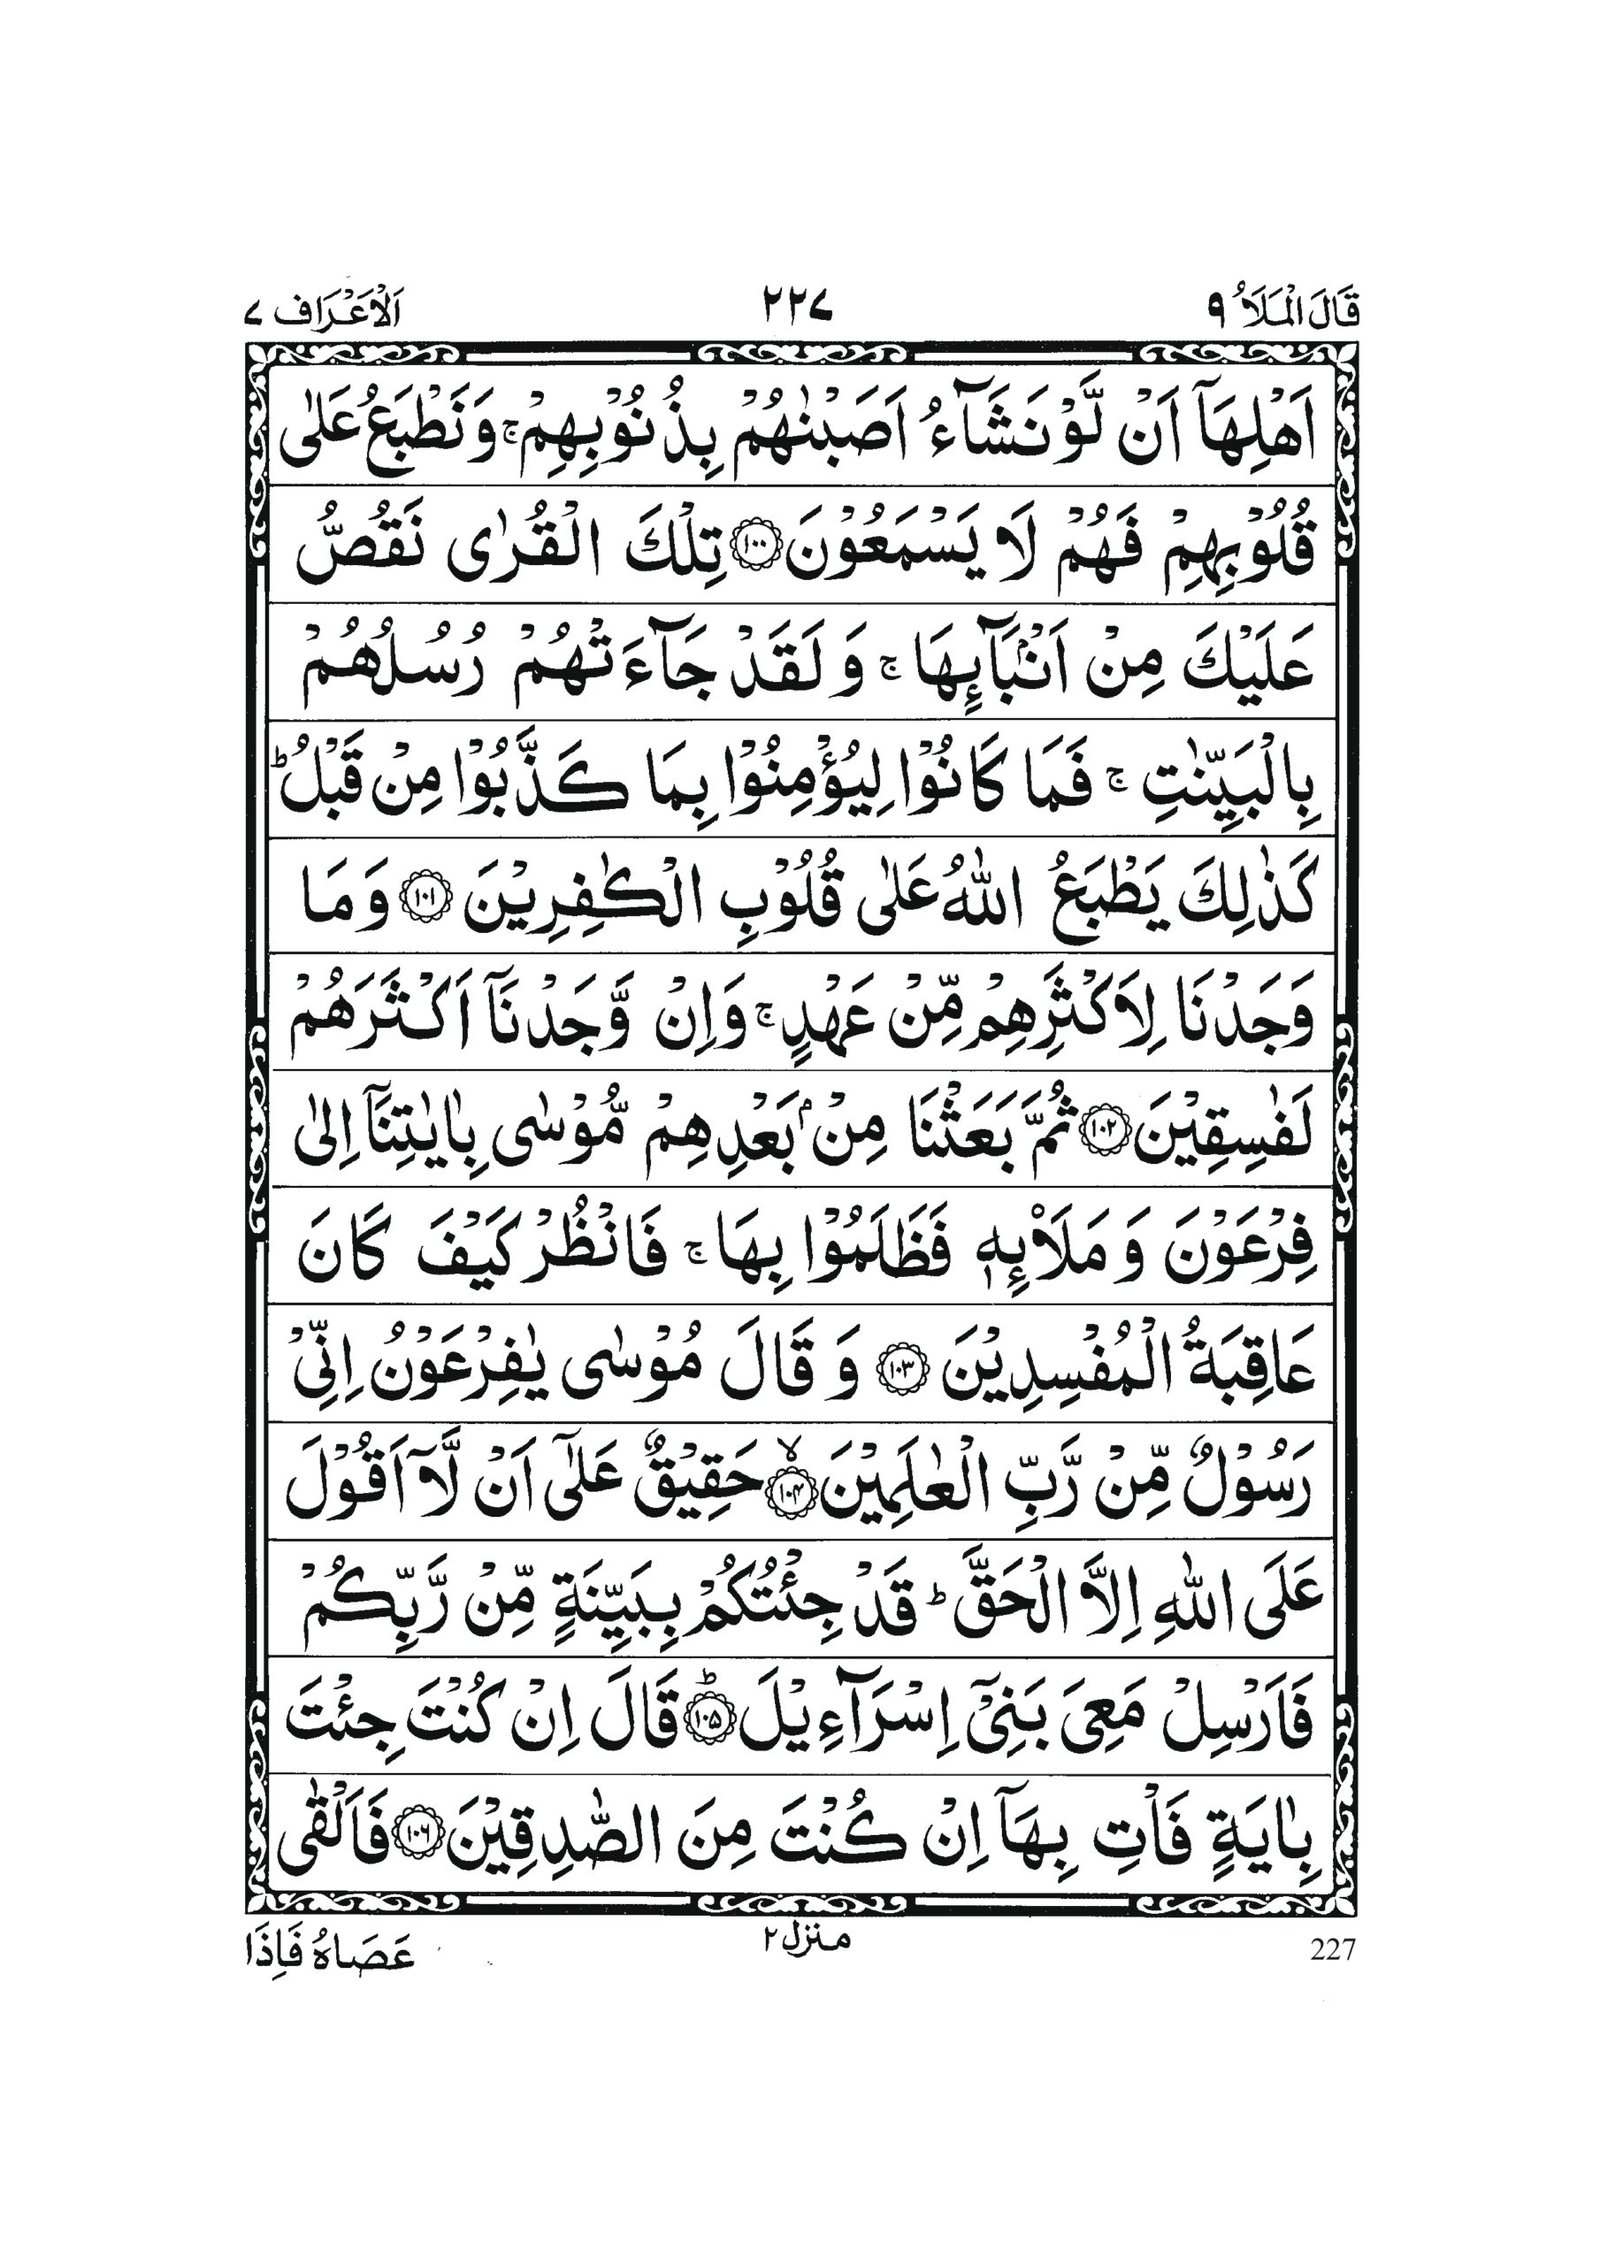 قَالَ الْمَلَاُ ٩ ٢٢٧ اَلْاَعْرَاف ٧
اَهْلِهَآ اَنْ لَّوْ نَشَآءُ اَصَبْنٰهُمْ بِذُنُوْبِهِمْ ۚ وَ نَطْبَعُ عَلٰى
قُلُوْبِهِمْ فَهُمْ لَا يَسْمَعُوْنَ ﴿١٠٠﴾ تِلْكَ الْقُرٰى نَقُصُّ
عَلَيْكَ مِنْ اَنْۢبَآىِٕهَا ۚ وَ لَقَدْ جَآءَتْهُمْ رُسُلُهُمْ
بِالْبَيِّنٰتِ ۚ فَمَا كَانُوْا لِيُؤْمِنُوْا بِمَا كَذَّبُوْا مِنْ قَبْلُ ؕ
كَذٰلِكَ يَطْبَعُ اللّٰهُ عَلٰى قُلُوْبِ الْكٰفِرِيْنَ ﴿١٠١﴾ وَ مَا
وَجَدْنَا لِاَكْثَرِهِمْ مِّنْ عَهْدٍ ۚ وَ اِنْ وَّجَدْنَآ اَكْثَرَهُمْ
لَفٰسِقِيْنَ ﴿١٠٢﴾ ثُمَّ بَعَثْنَا مِنْۢ بَعْدِهِمْ مُّوْسٰى بِاٰيٰتِنَآ اِلٰى
فِرْعَوْنَ وَ مَلَا۟ىِٕهٖ فَظَلَمُوْا بِهَا ۚ فَانْظُرْ كَيْفَ كَانَ
عَاقِبَةُ الْمُفْسِدِيْنَ ﴿١٠٣﴾ وَ قَالَ مُوْسٰى يٰفِرْعَوْنُ اِنِّيْ
رَسُوْلٌ مِّنْ رَّبِّ الْعٰلَمِيْنَ ۙ﴿١٠٤﴾ حَقِيْقٌ عَلٰٓى اَنْ لَّآ اَقُوْلَ
عَلَى اللّٰهِ اِلَّا الْحَقَّ ؕ قَدْ جِئْتُكُمْ بِبَيِّنَةٍ مِّنْ رَّبِّكُمْ
فَاَرْسِلْ مَعِيَ بَنِيْٓ اِسْرَآءِيْلَ ؕ﴿١٠٥﴾ قَالَ اِنْ كُنْتَ جِئْتَ
بِاٰيَةٍ فَاْتِ بِهَآ اِنْ كُنْتَ مِنَ الصّٰدِقِيْنَ ﴿١٠٦﴾ فَاَلْقٰى
227 منزل ٢ عَصَاهُ فَاِذَا